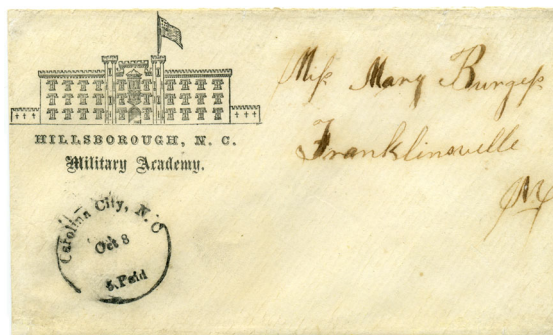 HILLSBOROUGH, N. C.
Military Academy.
Carolina City, N. C
Oct 8
5 Paid
Miſs Mary Burgeſs
Franklinsville
NC